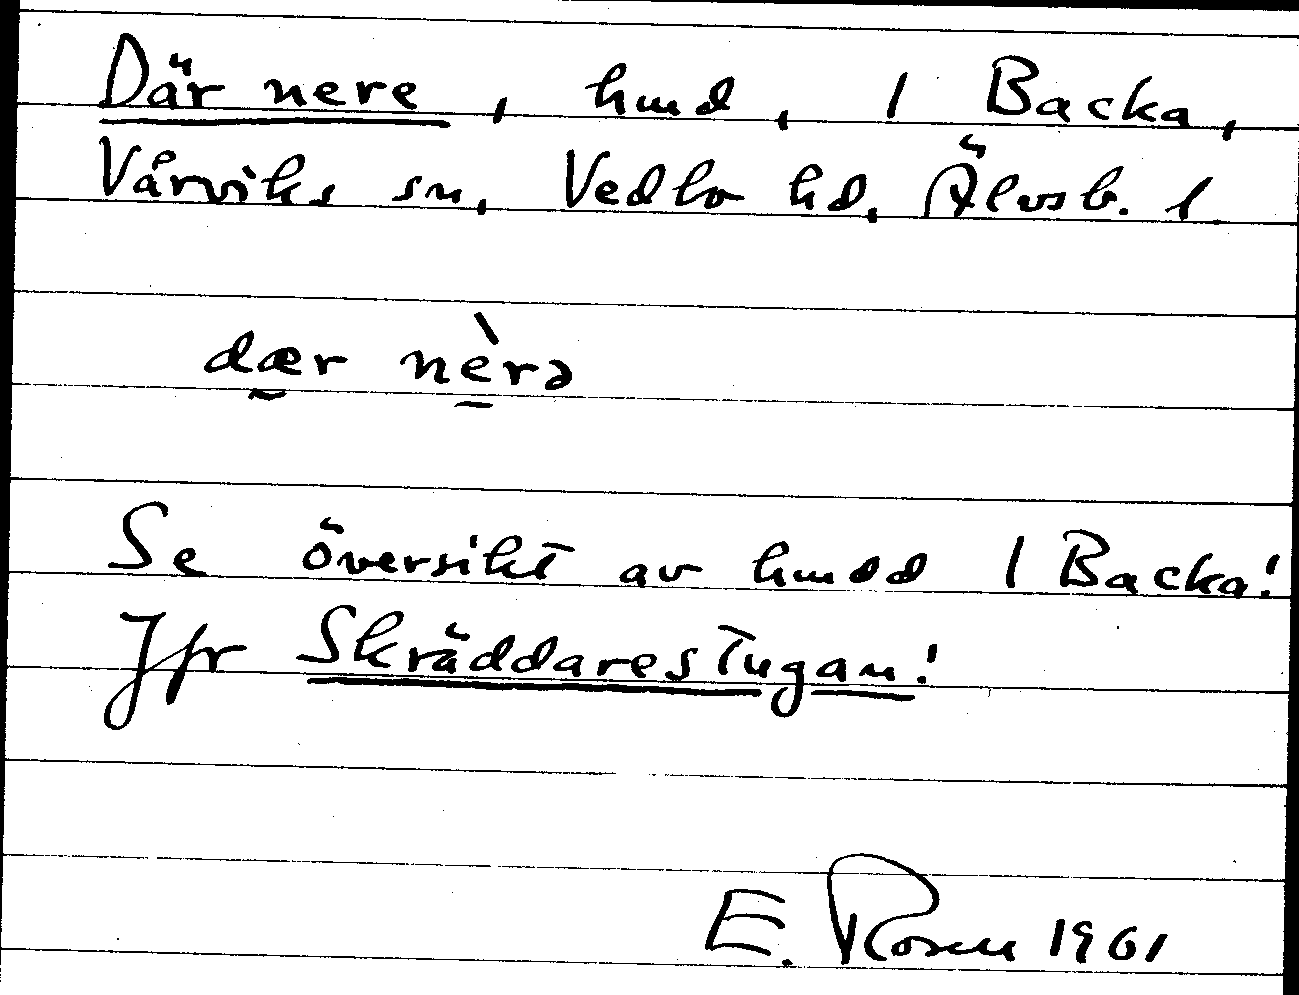 Där nere, hmd, 1 Backa,
Vårviks sn, Vedbo hd, Älvsb. l.
dær nèrə
Se översikt av hmdd 1 Backa!
Jfr Skräddarestugan!
E. Rosen 1961